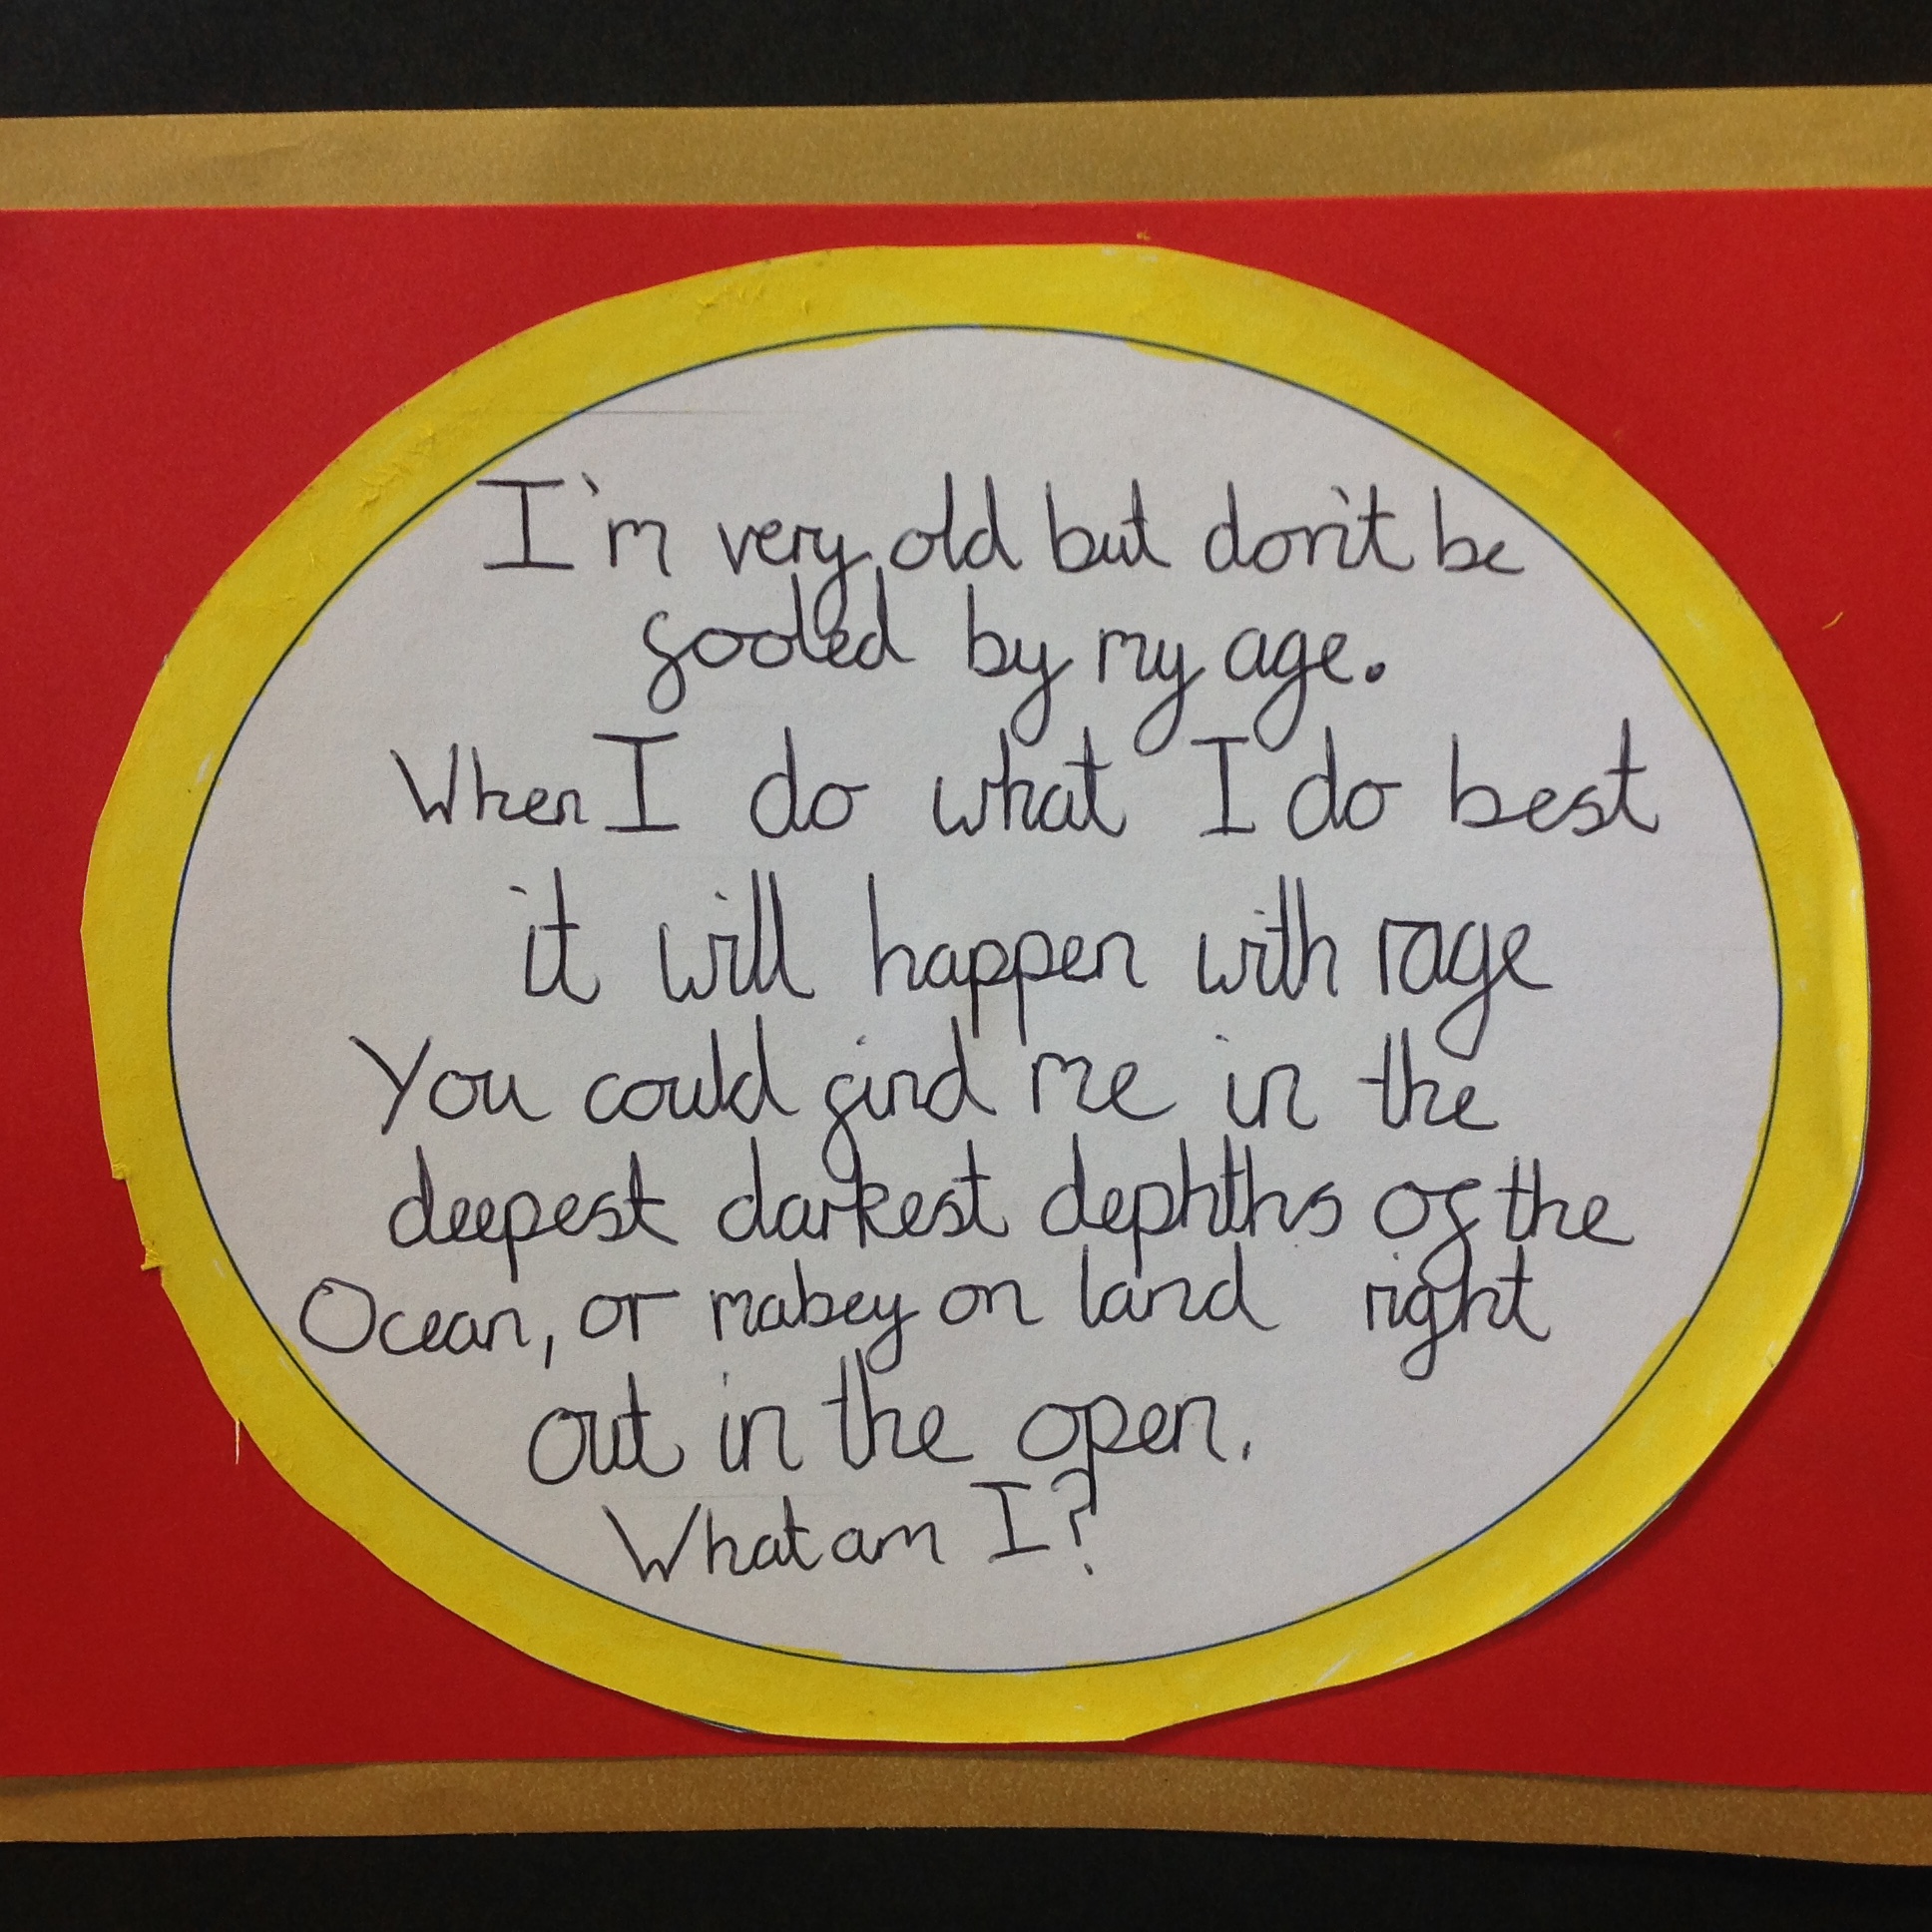 I'm very old but don't be
fooled by my age.
When I do what I do best
it will happen with rage
You could find me in the
deepest darkest dephths of the
Ocean, or mabey on land right
out in the open.
What am I?